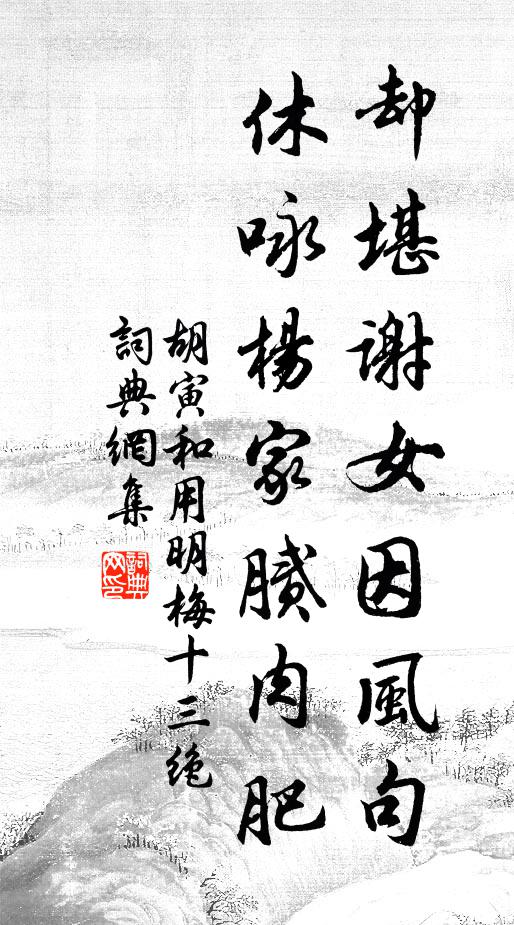 却堪謝女因風句
休咏楊家膩肉肥
胡寅和用明梅十三绝
詞典網集
詞典網印